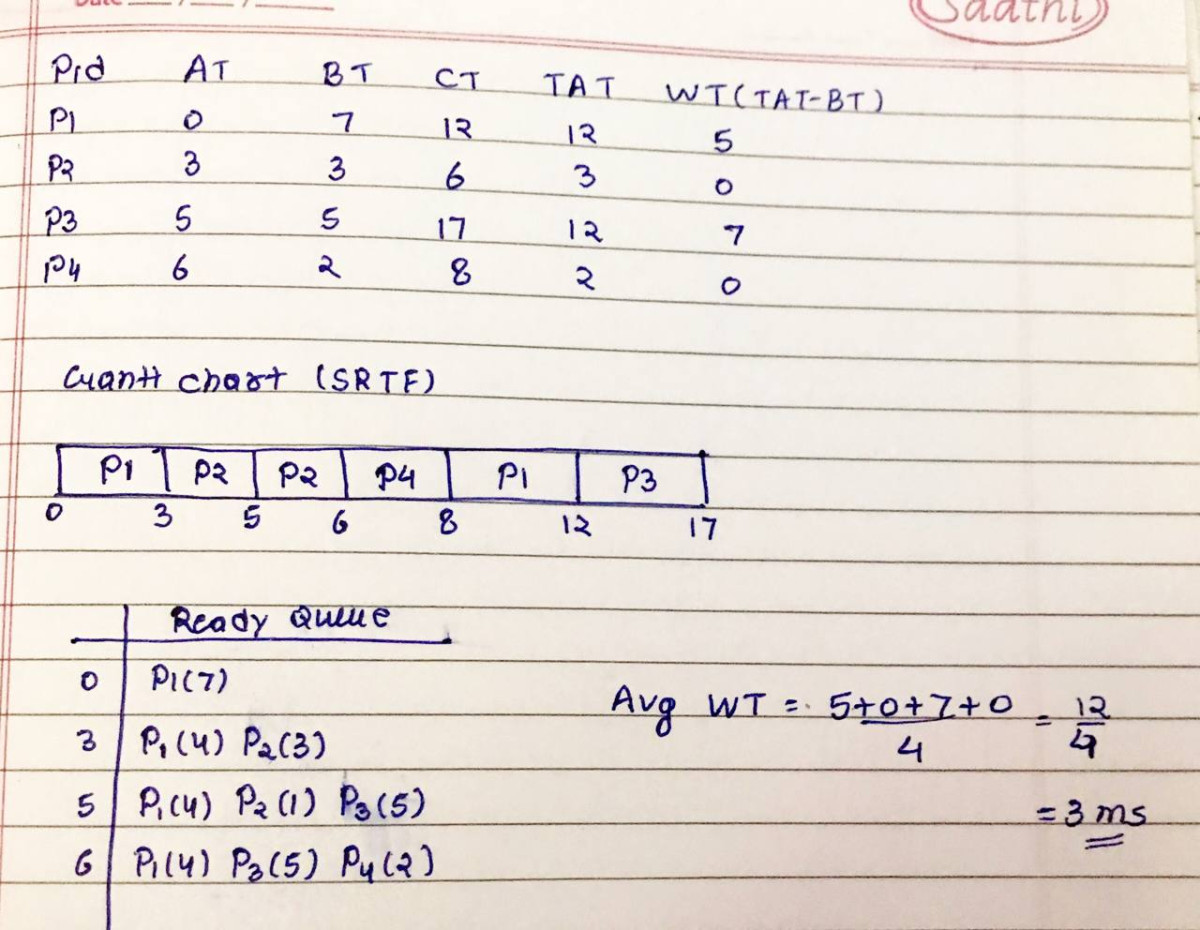 Date / /
Saathi
Pid AT BT CT TAT WT(TAT-BT)
P1 0 7 12 12 5
P2 3 3 6 3 0
P3 5 5 17 12 7
P4 6 2 8 2 0
Guantt chart (SRTF)
P1 P2 P2 P4 P1 P3
0 3 5 6 8 12 17
Ready Queue
0 P1(7)
3 P1(4) P2(3)
5 P1(4) P2(1) P3(5)
6 P1(4) P3(5) P4(2)
Avg WT = 5+0+7+0 = 12
4 4
= 3 ms